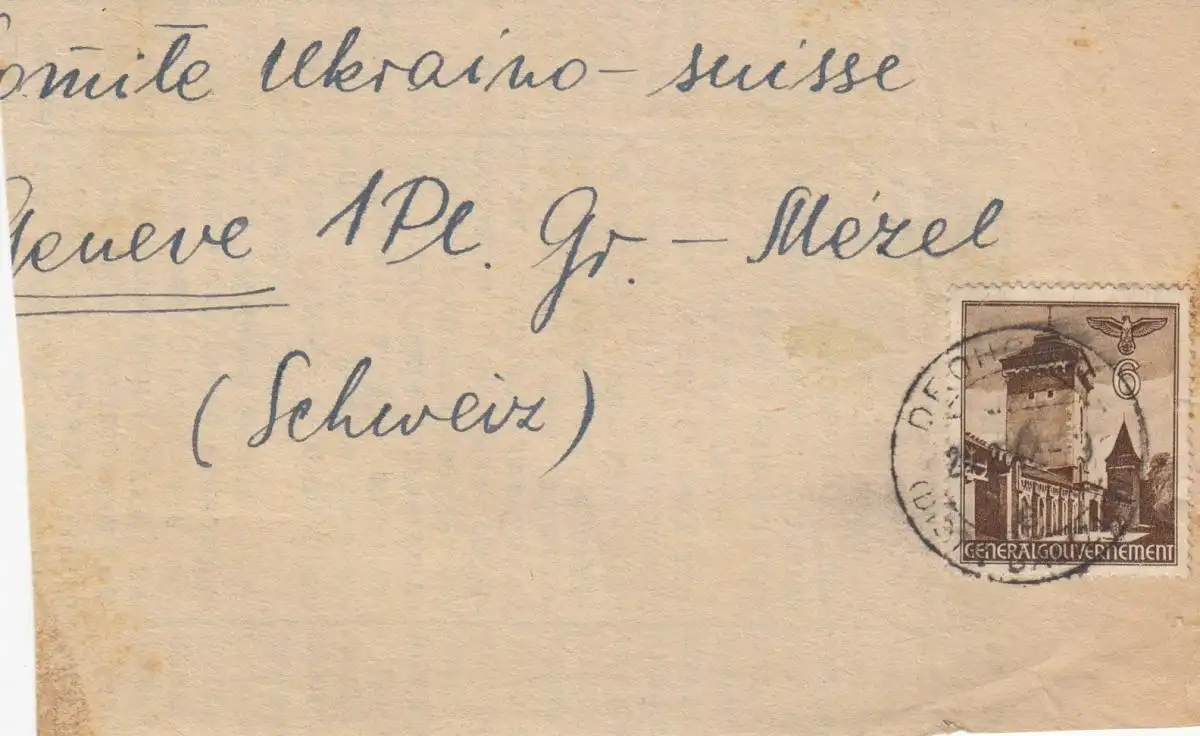 Comité Ukraino-suisse
Geneve 1 Pl. Gr. - Mézel
(Schweiz)
6
GENERALGOUVERNEMENT